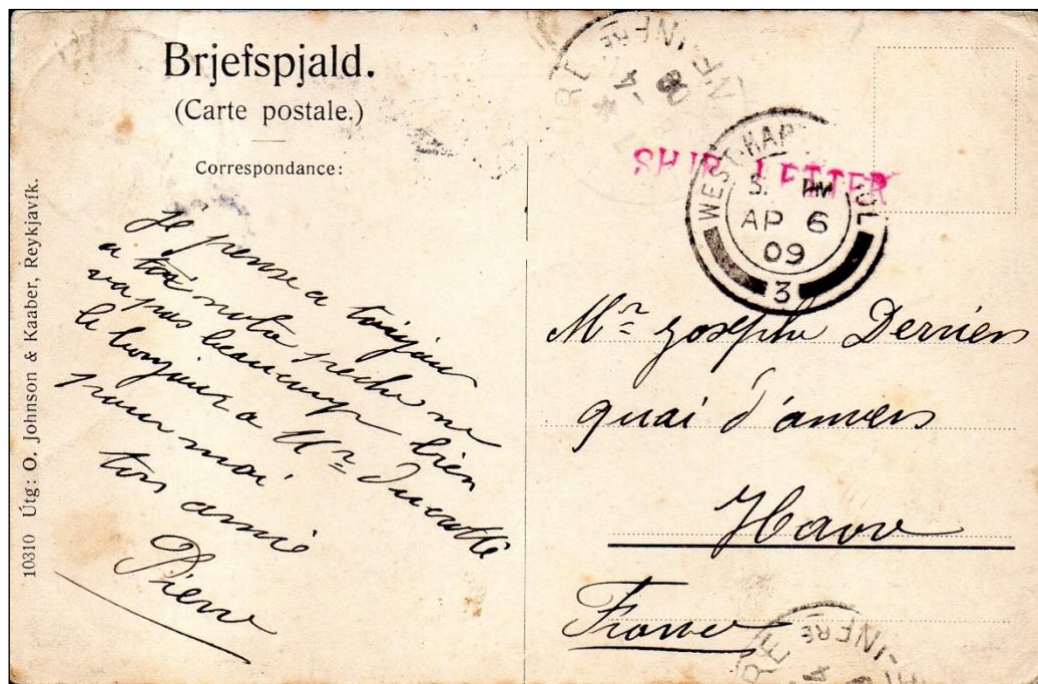 Brjefspjald.
(Carte postale.)
Correspondance:
10310 Útg: O. Johnson & Kaaber, Reykjavík.
je pense a toujour
a toi notre peche ne
va pas beaucoup bien
le bonjour a Mr
pour moi
ton amie
Pierre
SHIP LETTER
WEST HAR OOL
5. PM
AP 6
09
3
Mr Joseph Derrien
quai d'anvers
Havre
France
INFRE
INFRE